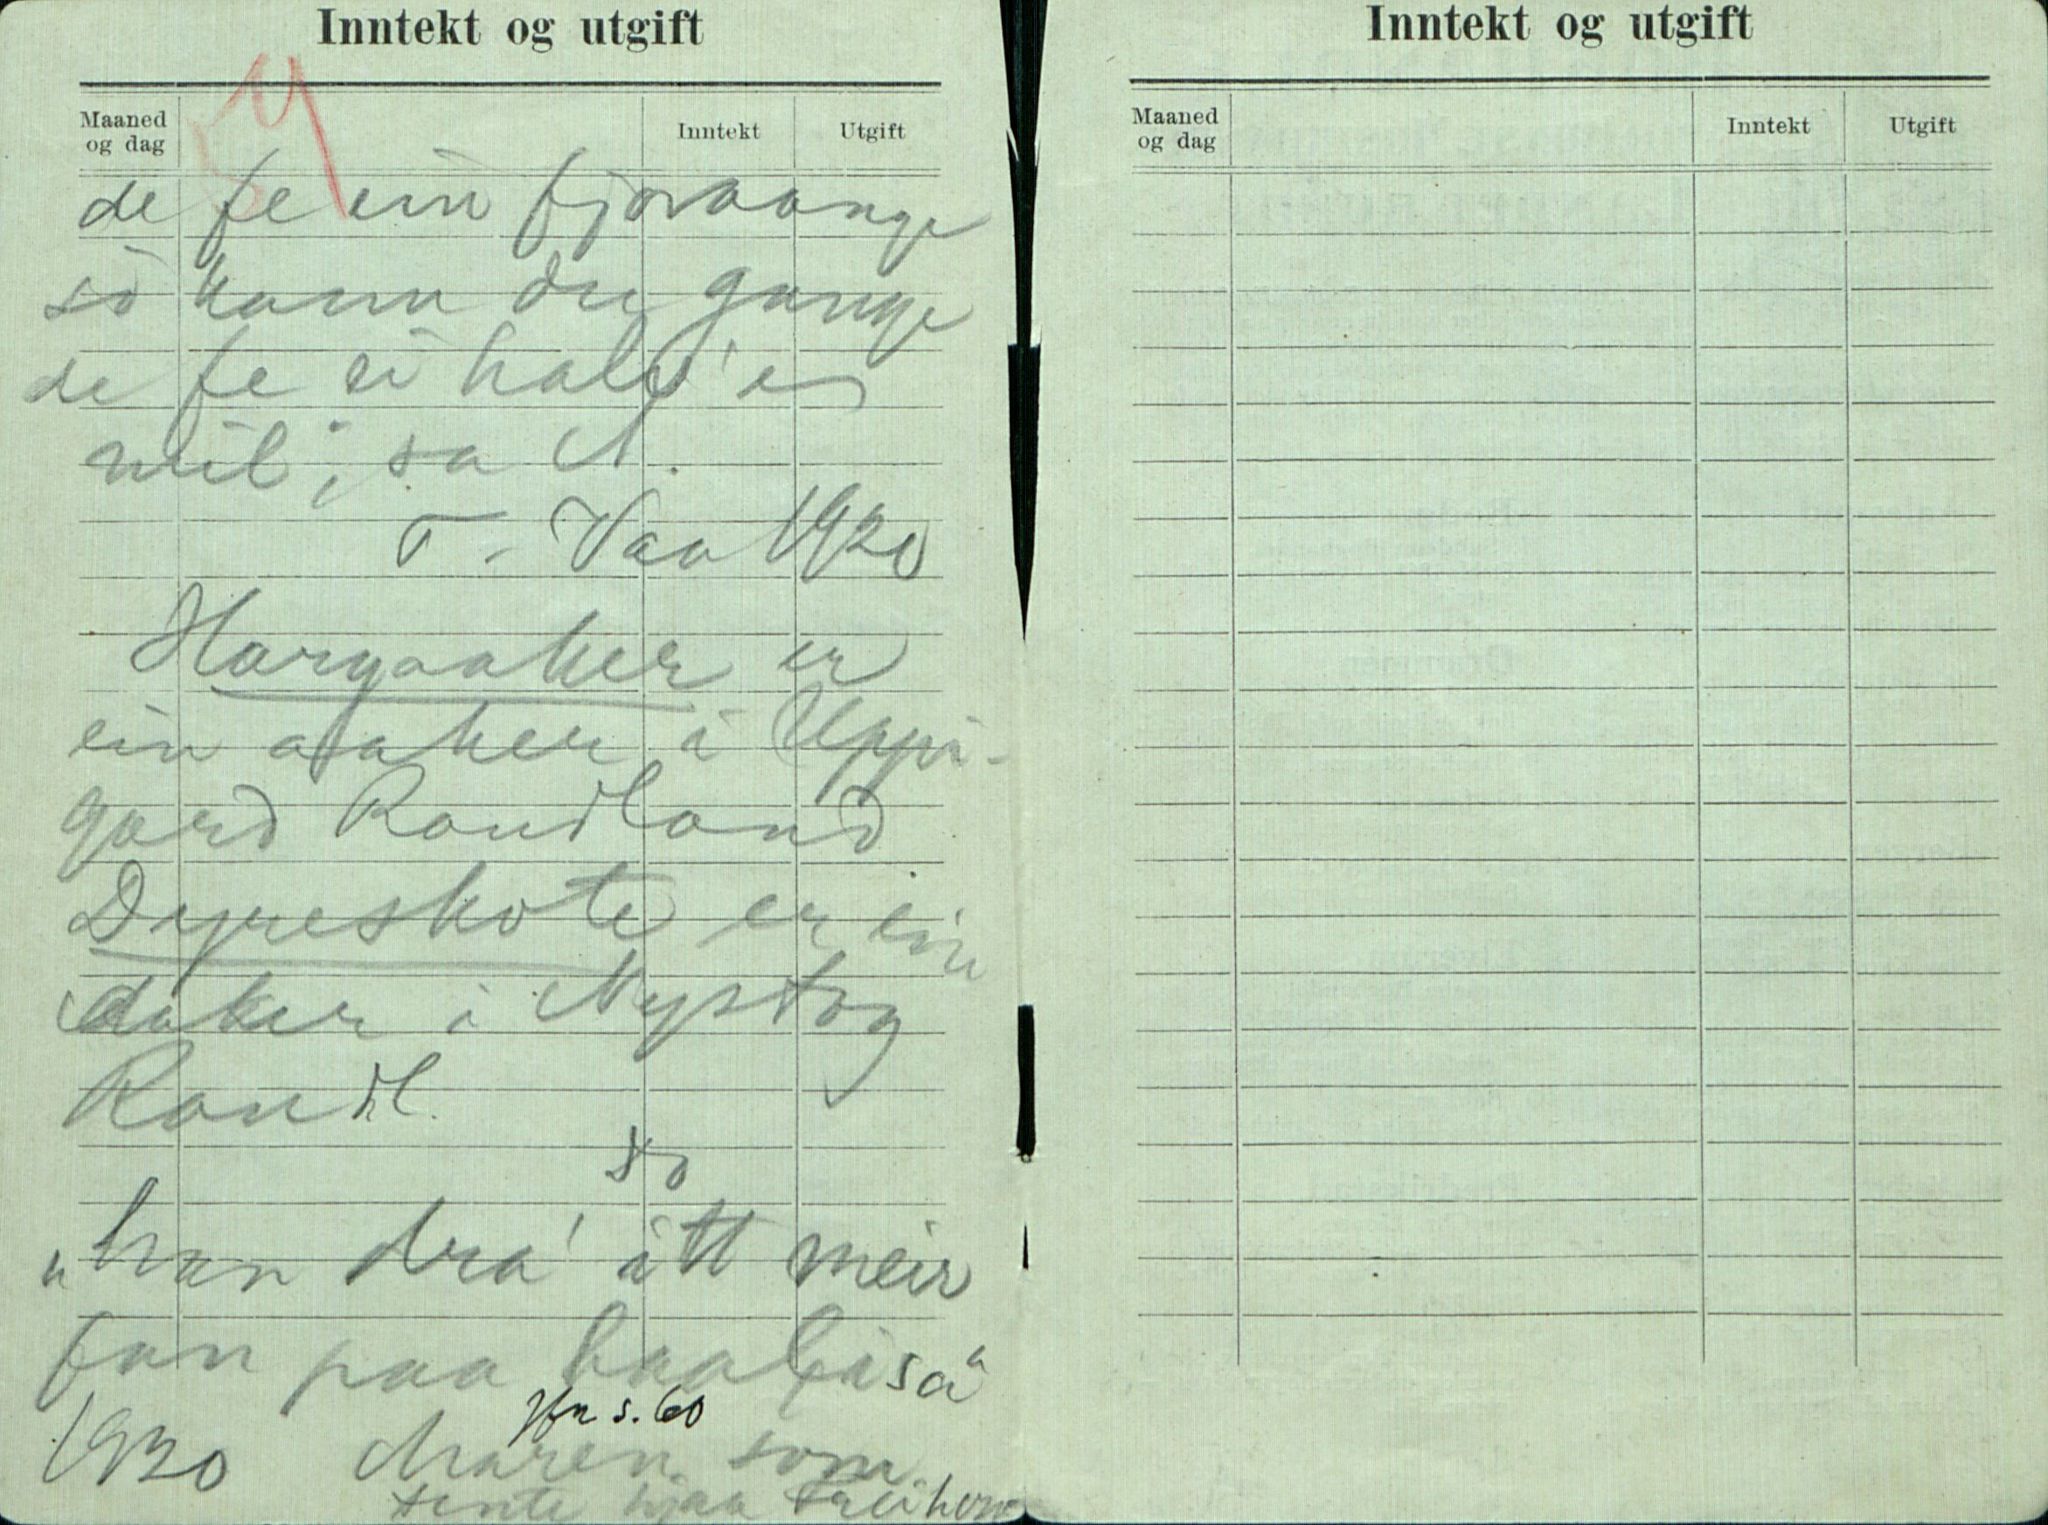 Inntekt og utgift
Maaned
og dag
Inntekt
Utgift
de fe ein fjoraange
so kann du gange
de fe ei halv' ei
mil", sa A.
T. Vaa 1920
Horgaaker er
ein aaker i Uppi-
gard Raudland
Dyreskote er ein
aaker i Nystog
Raudl.
so
"han dra' itt meir
fan paa
1920
Jfr s. 60
Maren som
tente hjaa
Inntekt og utgift
Maaned
og dag
Inntekt
Utgift